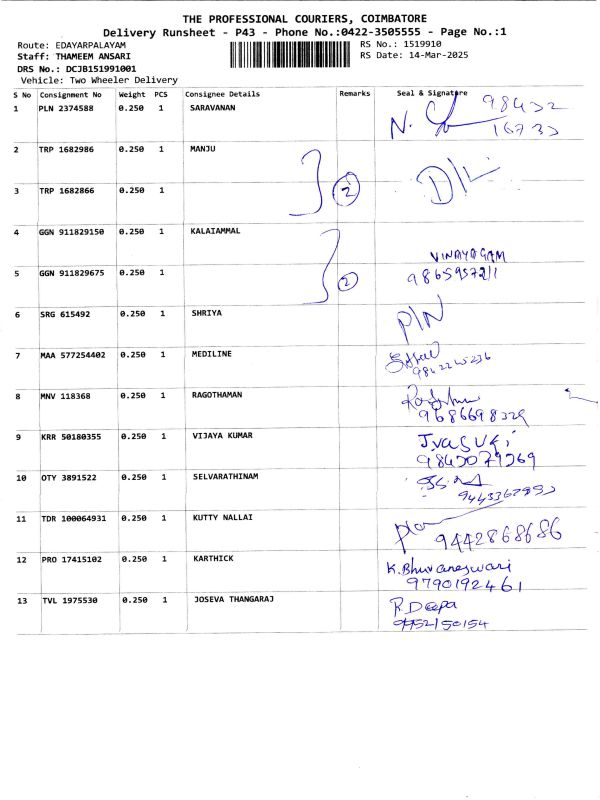 THE PROFESSIONAL COURIERS, COIMBATORE
Delivery Runsheet - P43 - Phone No.:0422-3505555 - Page No.:1
Route: EDAYARPALAYAM RS No.: 1519910
Staff: THAMEEM ANSARI RS Date: 14-Mar-2025
DRS No.: DCJB151991001
Vehicle: Two Wheeler Delivery
S No Consignment No Weight PCS Consignee Details Remarks Seal & Signature
1 PLN 2374588 0.250 1 SARAVANAN N. 98432
16733
2 TRP 1682986 0.250 1 MANJU D/L
2
3 TRP 1682866 0.250 1
4 GGN 911829150 0.250 1 KALAIAMMAL
VINAYAGAM
5 GGN 911829675 0.250 1 2
6 SRG 615492 0.250 1 SHRIYA P/N
7 MAA 577254402 0.250 1 MEDILINE
8 MNV 118368 0.250 1 RAGOTHAMAN
9686698329
9 KRR 50180355 0.250 1 VIJAYA KUMAR J.VASUKI
9843079369
10 OTY 3891522 0.250 1 SELVARATHINAM
11 TDR 100064931 0.250 1 KUTTY NALLAI
9442868686
12 PRO 17415102 0.250 1 KARTHICK K.Bhuvaneswari
9790192461
13 TVL 1975530 0.250 1 JOSEVA THANGARAJ R.Deepa